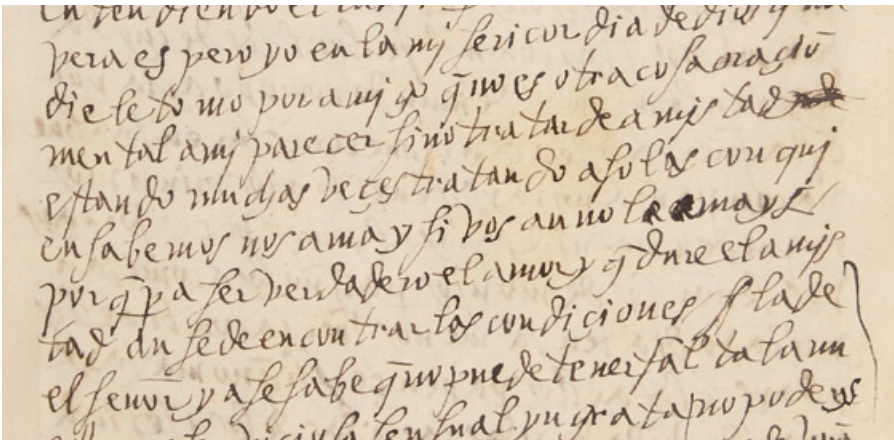 pera es pero yo en la mysericordia de dios q na
die le tomo por amigo q̄ no es otra cosa oraciō
mental a mj parecer sino tratar de amjstad
estando muchas veçes tratando a solas con quj
en sabemos nos ama y si vos aun no le amays
por q̄ pa ser verdadero el amor y q̄ dure el amjs
tad an se de encontrar las condiçiones la de
el señor ya se sabe q̄ no puede tener falta la nr̄a
sensual yngrata no podeys